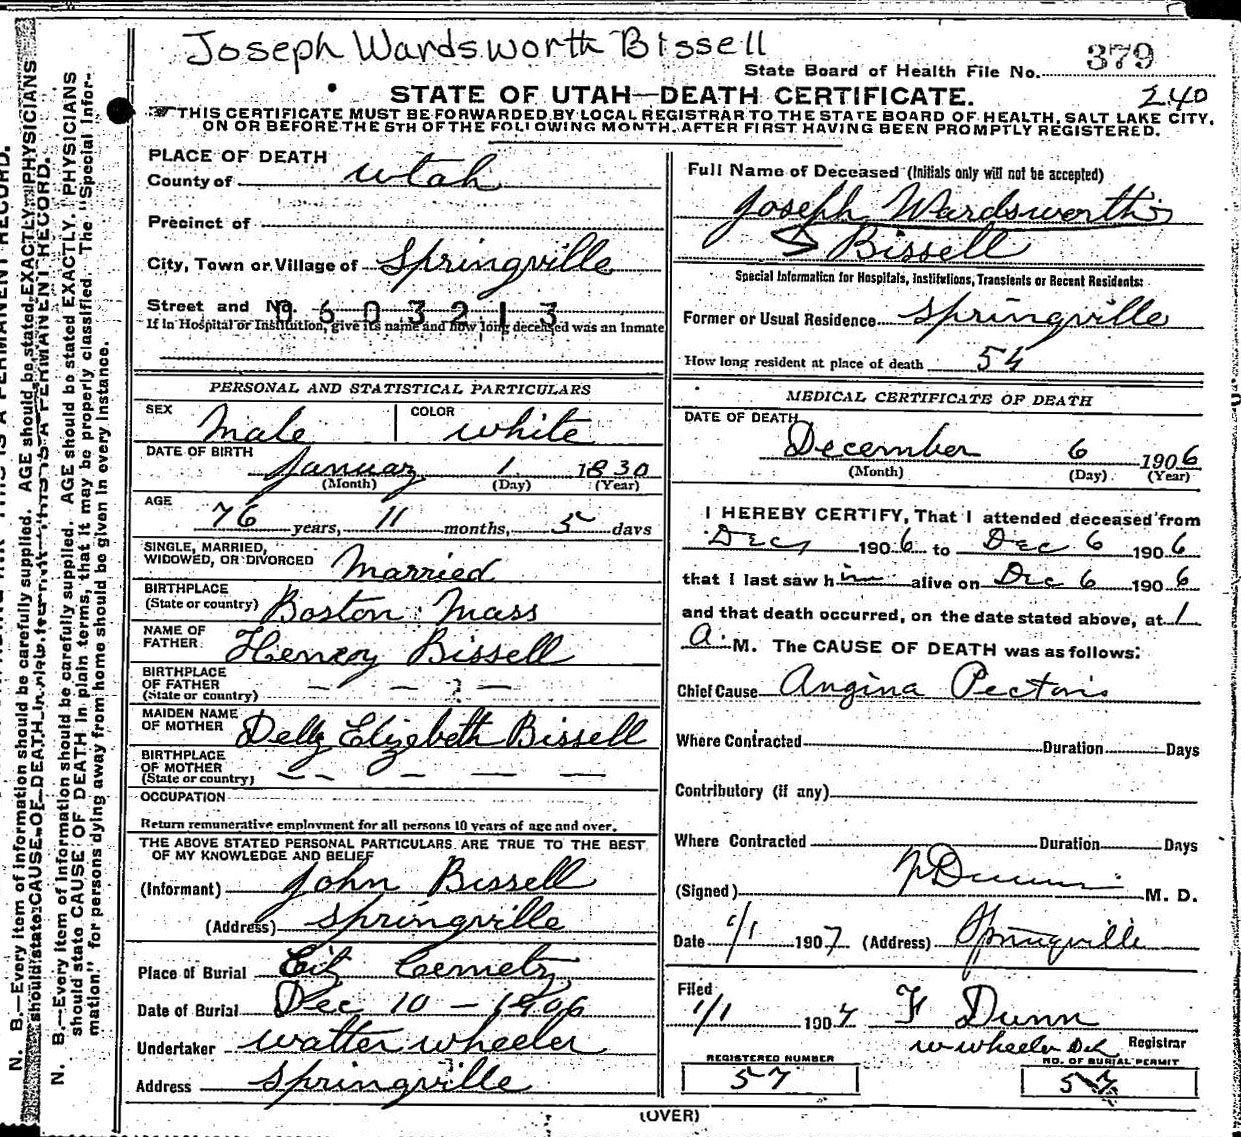 Joseph Wardsworth Bissell
State Board of Health File No. 379
240
STATE OF UTAH—DEATH CERTIFICATE.
THIS CERTIFICATE MUST BE FORWARDED BY LOCAL REGISTRAR TO THE STATE BOARD OF HEALTH, SALT LAKE CITY,
ON OR BEFORE THE 5TH OF THE FOLLOWING MONTH, AFTER FIRST HAVING BEEN PROMPTLY REGISTERED.
PLACE OF DEATH
County of Utah
Precinct of
City, Town or Village of Springville
Street and No. 9603213
If in Hospital or Institution, give its name and how long deceased was an Inmate
PERSONAL AND STATISTICAL PARTICULARS
SEX Male COLOR White
DATE OF BIRTH January 1 1830
(Month) (Day) (Year)
AGE 76 years, 11 months, 5 days
SINGLE, MARRIED,
WIDOWED, OR DIVORCED Married
BIRTHPLACE
(State or country) Boston Mass
NAME OF
FATHER Henroy Bissell
BIRTHPLACE
OF FATHER
(State or country) — — ? —
MAIDEN NAME
OF MOTHER Delly Elizebeth Bissell
BIRTHPLACE
OF MOTHER
(State or country) — — — — —
OCCUPATION
Return remunerative employment for all persons 10 years of age and over.
THE ABOVE STATED PERSONAL PARTICULARS ARE TRUE TO THE BEST
OF MY KNOWLEDGE AND BELIEF
(Informant) John Bissell
(Address) Springville
Place of Burial City Cemety
Date of Burial Dec 10 - 1906
Undertaker Walter Wheeler
Address Springville
Full Name of Deceased (Initials only will not be accepted)
Joseph Wardsworth
Bissell
Special Information for Hospitals, Institutions, Transients or Recent Residents:
Former or Usual Residence Springville
How long resident at place of death 54
MEDICAL CERTIFICATE OF DEATH
DATE OF DEATH
December 6 1906
(Month) (Day) (Year)
I HEREBY CERTIFY, That I attended deceased from
Dec, 1906 to Dec 6 1906
that I last saw him alive on Dec 6 1906
and that death occurred, on the date stated above, at 1
A. M. The CAUSE OF DEATH was as follows:
Chief Cause Angina Pectoris
Where Contracted Duration Days
Contributory (if any)
Where Contracted Duration Days
(Signed) M. D.
Date 1/1 1907 (Address) Springville
Filed
1/1 1907 F Dunn
W Wheeler Registrar
REGISTERED NUMBER
57
NO. OF BURIAL PERMIT
57
(OVER)
N. B.—Every item of information should be carefully supplied. AGE should be stated EXACTLY. PHYSICIANS
should state CAUSE OF DEATH in plain terms, that it may be properly classified. The "Special Infor-
mation" for persons dying away from home should be given in every instance.
N. B.—Every item of information should be carefully supplied. AGE should be stated EXACTLY. PHYSICIANS
should state CAUSE OF DEATH
THIS IS A PERMANENT RECORD.